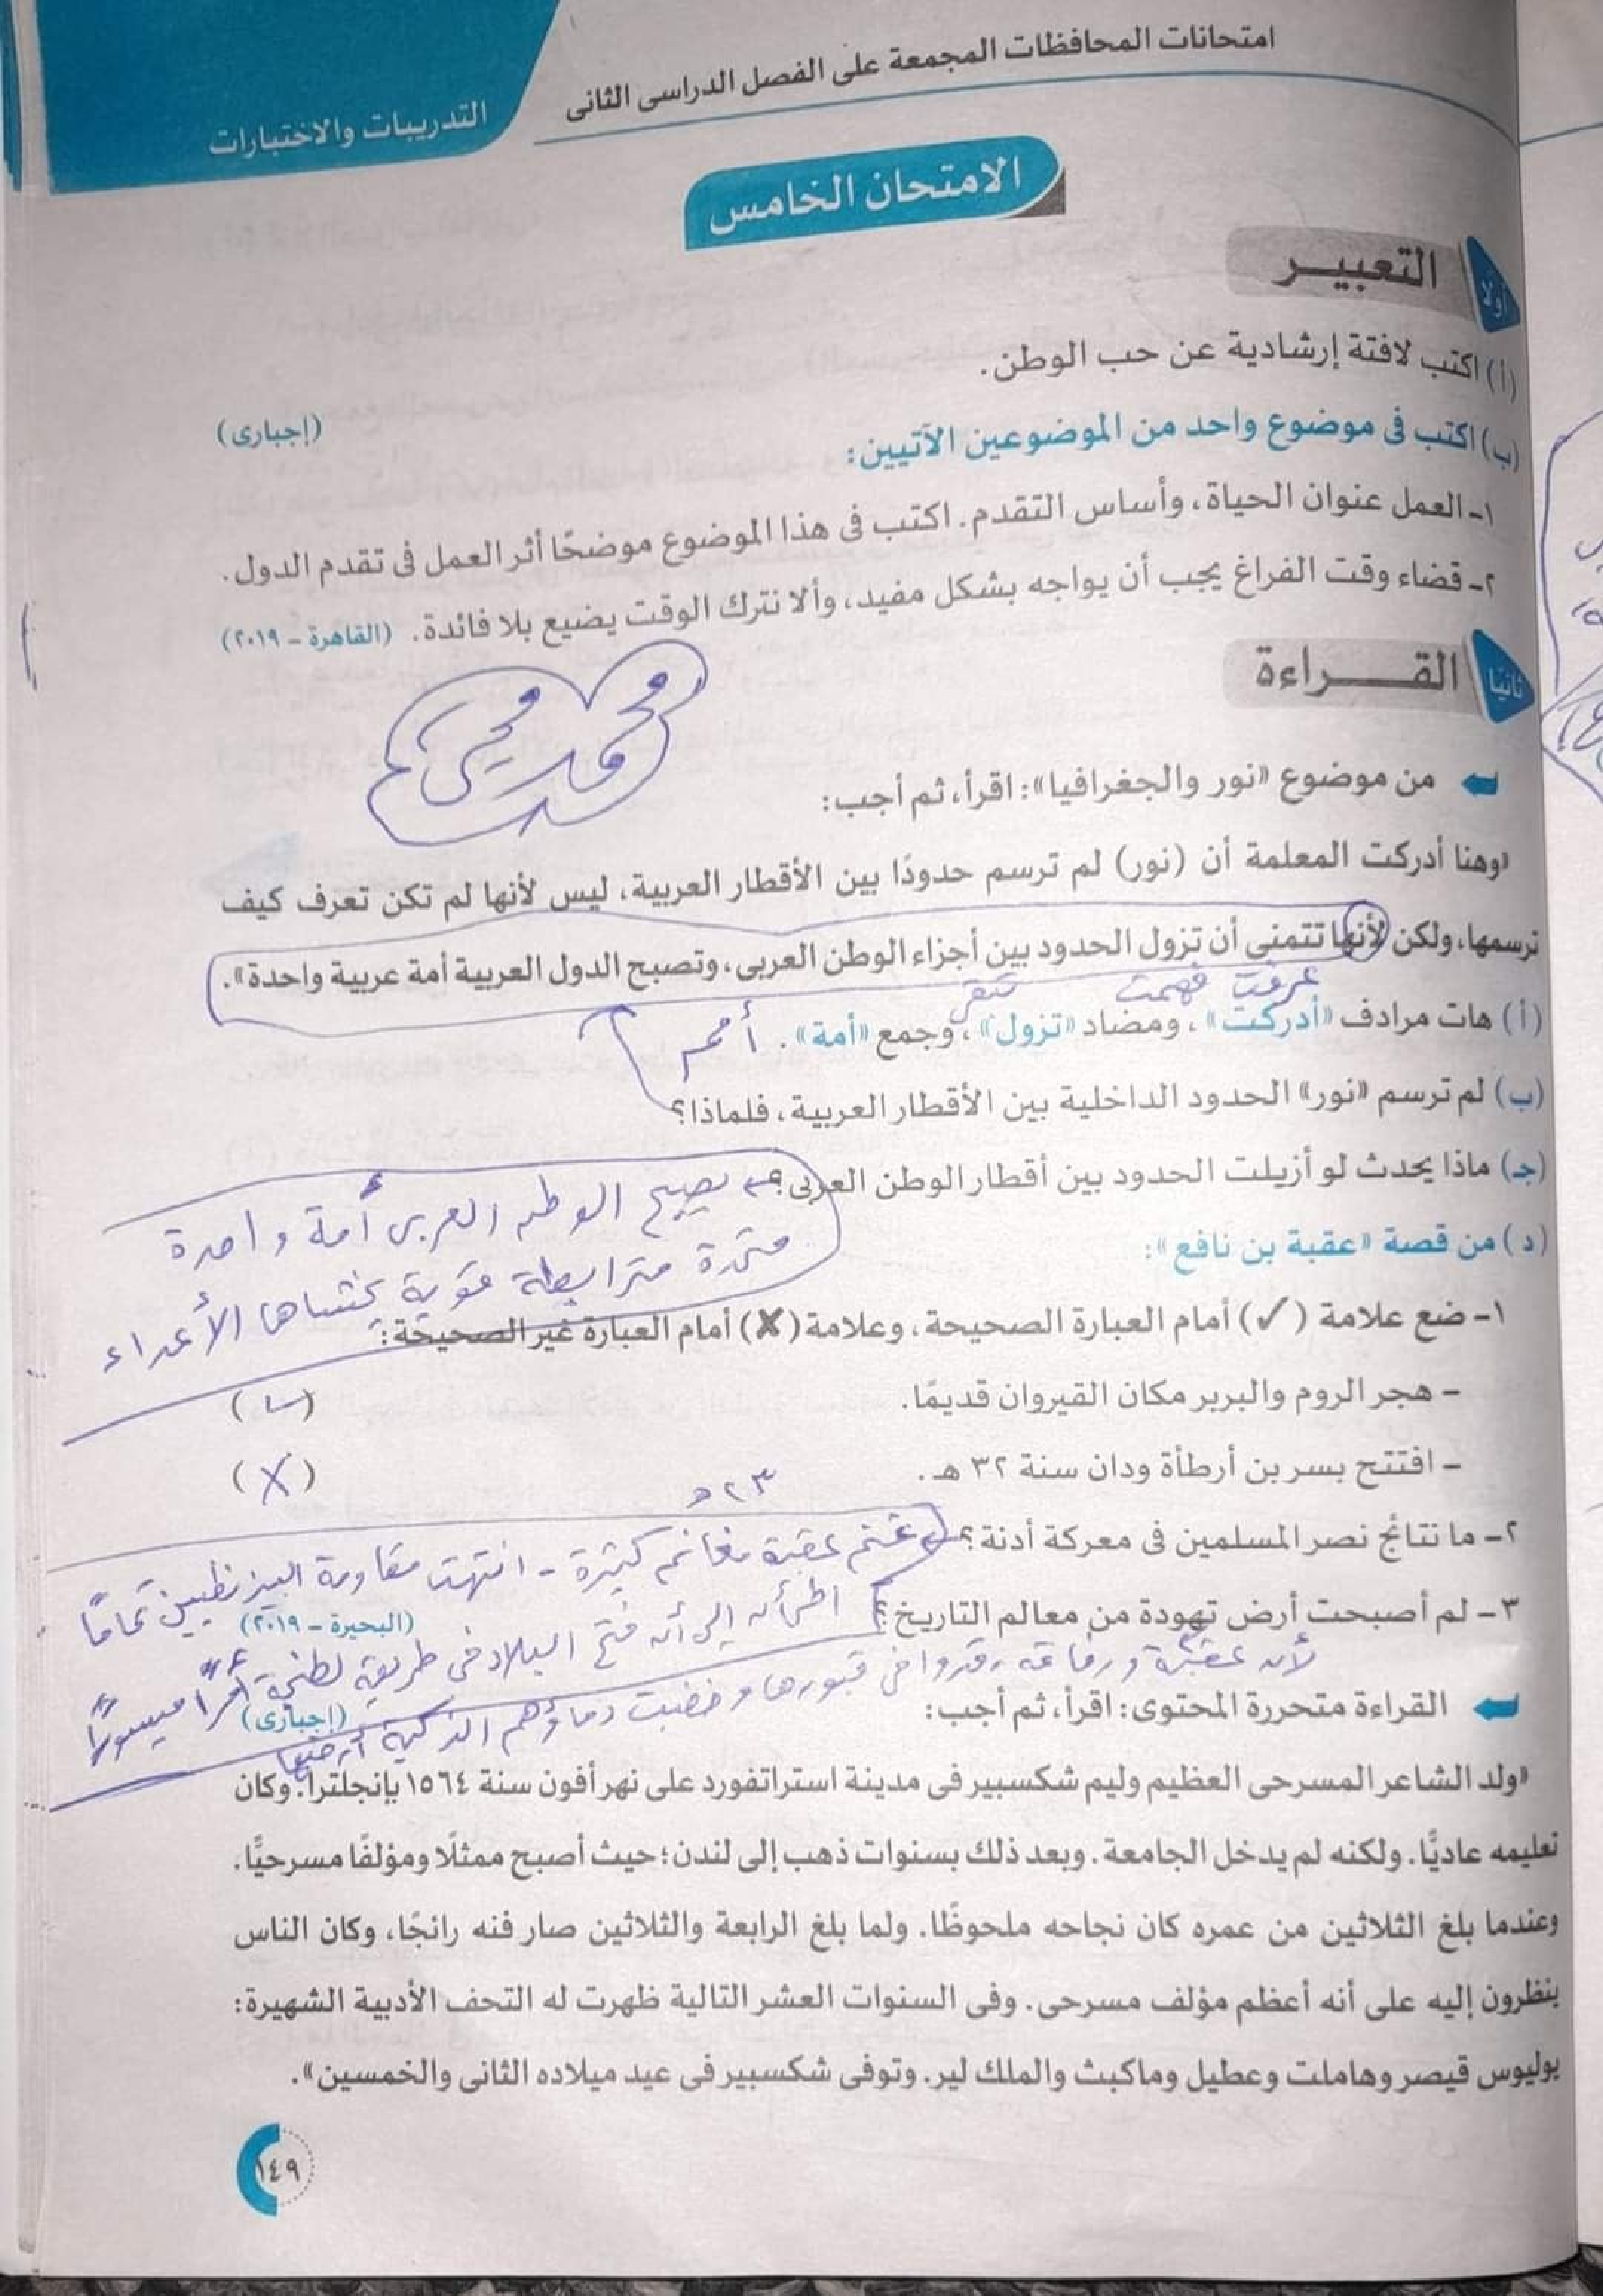 امتحانات المحافظات المجمعة على الفصل الدراسى الثانى
التدريبات والاختبارات
الامتحان الخامس
أولا التعبيـــر
(أ) اكتب لافتة إرشادية عن حب الوطن.
(ب) اكتب فى موضوع واحد من الموضوعين الآتيين: (إجبارى)
١- العمل عنوان الحياة، وأساس التقدم. اكتب فى هذا الموضوع موضحًا أثر العمل فى تقدم الدول.
٢- قضاء وقت الفراغ يجب أن يواجه بشكل مفيد، وألا نترك الوقت يضيع بلا فائدة. (القاهرة - ٢٠١٩)
ثانيا القـــراءة
محمد محيى
من موضوع «نور والجغرافيا»: اقرأ، ثم أجب:
«وهنا أدركت المعلمة أن (نور) لم ترسم حدودًا بين الأقطار العربية، ليس لأنها لم تكن تعرف كيف
ترسمها، ولكن لأنها تتمنى أن تزول الحدود بين أجزاء الوطن العربى، وتصبح الدول العربية أمة عربية واحدة».
عرفت فهمت تبقى
(أ) هات مرادف «أدركت»، ومضاد «تزول»، وجمع «أمة». أمم
(ب) لم ترسم «نور» الحدود الداخلية بين الأقطار العربية، فلماذا؟
(جـ) ماذا يحدث لو أزيلت الحدود بين أقطار الوطن العربى؟ يصبح الوطن العربى أمة واحدة
متحدة مترابطة قوية يخشاها الأعداء
(د) من قصة «عقبة بن نافع»:
١- ضع علامة (✓) أمام العبارة الصحيحة، وعلامة (✗) أمام العبارة غير الصحيحة:
- هجر الروم والبربر مكان القيروان قديمًا. (✓)
- افتتح بسر بن أرطأة ودان سنة ٣٢ هـ. (✗)
٢٣ هـ
٢- ما نتائج نصر المسلمين فى معركة أدنة؟ غنم عقبة مغانم كثيرة - انتهت مقاومة البيزنطيين تمامًا
اطمأن إلى أن فتح البلاد فى طريقه لطنجة أمرًا ميسورًا
٣- لم أصبحت أرض تهودة من معالم التاريخ؟ (البحيرة - ٢٠١٩)
لأن عقبة ورفاقه رقدوا فى قبورها وخضبت دماؤهم الزكية أرضها
القراءة متحررة المحتوى: اقرأ، ثم أجب: (إجبارى)
«ولد الشاعر المسرحى العظيم وليم شكسبير فى مدينة استراتفورد على نهر أفون سنة ١٥٦٤ بإنجلترا. وكان
تعليمه عاديًّا. ولكنه لم يدخل الجامعة. وبعد ذلك بسنوات ذهب إلى لندن؛ حيث أصبح ممثلًا ومؤلفًا مسرحيًّا.
وعندما بلغ الثلاثين من عمره كان نجاحه ملحوظًا. ولما بلغ الرابعة والثلاثين صار فنه رائجًا، وكان الناس
ينظرون إليه على أنه أعظم مؤلف مسرحى. وفى السنوات العشر التالية ظهرت له التحف الأدبية الشهيرة:
يوليوس قيصر وهاملت وعطيل وماكبث والملك لير. وتوفى شكسبير فى عيد ميلاده الثانى والخمسين».
١٤٩